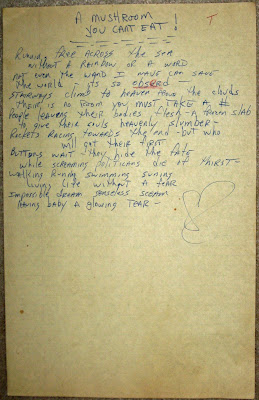 A MUSHROOM
YOU CANT EAT!
T
Runing free ACROSS the sea
without A RAinbow OR A WORD
not even the WAND I have can save
the world its so obsured
STAIRWAYS climb to heaven Above the clouds
their is no room you must TAKE A #
People leaving their bodies flesh - A frozen slab
to give their souls heavenly slumber -
Rockets Racing towards the end - but who
will get their first
Buttons wait they hide the fate
while screaming politicans die of thirst -
walking Runing swimming suning
living life without A fear
Impossible dream senseless scream
leaving baby A glowing TEAR -